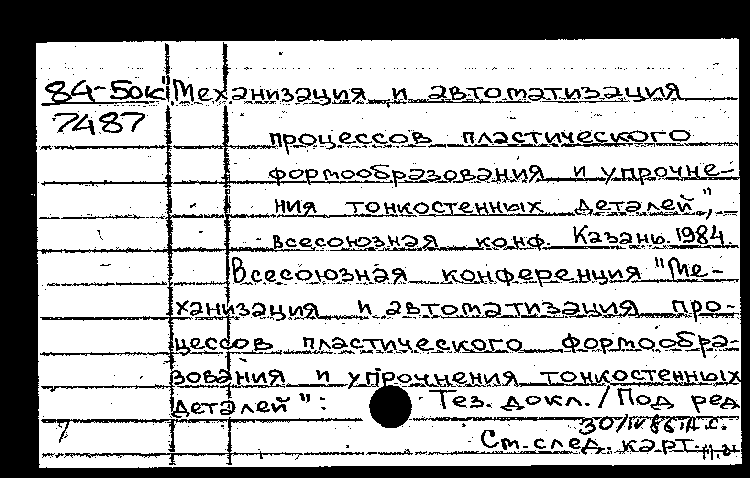 84-50к "Механизация и автоматизация
7487
процессов пластического
формообразования и упрочне-
ния тонкостенных деталей",
всесоюзная конф. Казань. 1984
Всесоюзная конференция "Ме-
ханизация и автоматизация про-
цессов пластического формообра-
зования и упрочнения тонкостенных
деталей": Тез. докл. / Под ред
30/IV 86
См. след. карт.